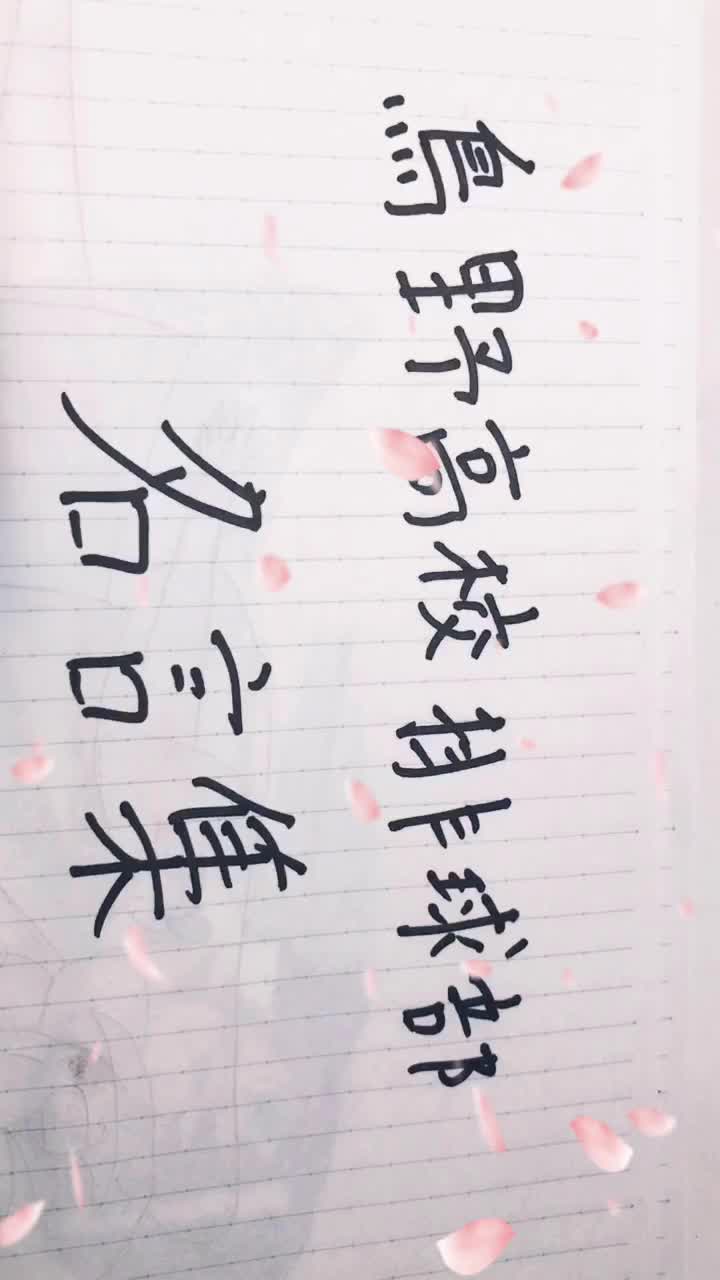 烏野高校排球部
名言集